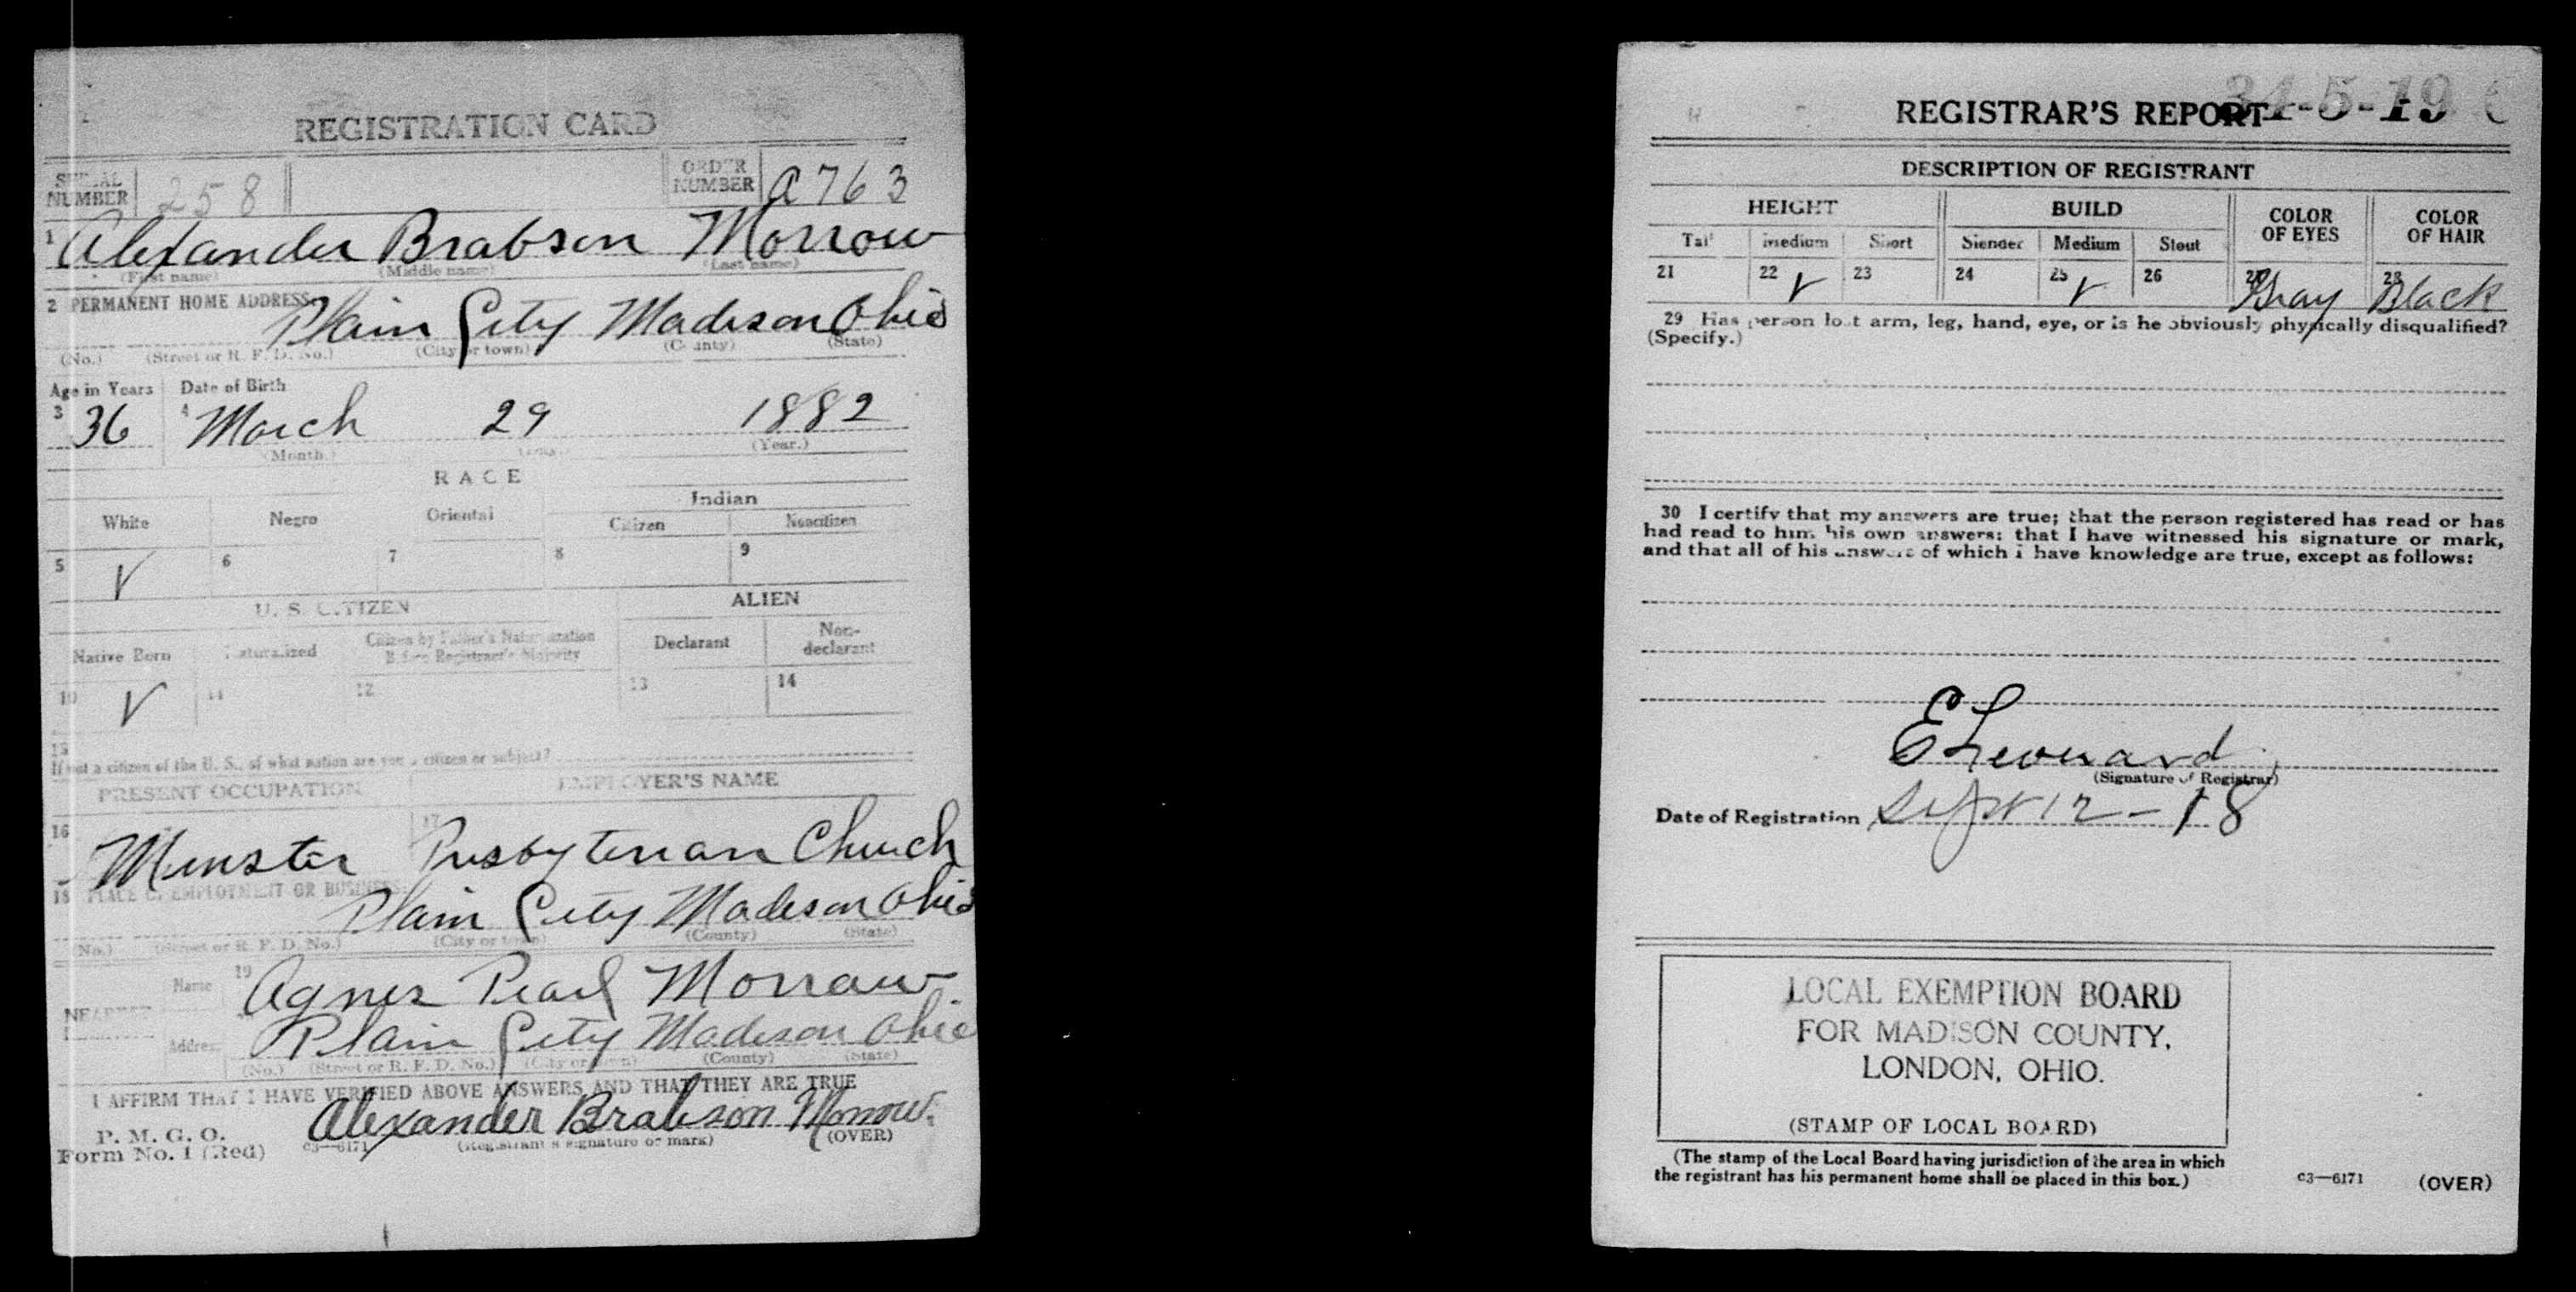 REGISTRATION CARD
SERIAL NUMBER 258 ORDER NUMBER A763
1 Alexander Brabson Morrow
(First name) (Middle name) (Last name)
2 PERMANENT HOME ADDRESS:
Plain City Madison Ohio
(No.) (Street or R. F. D. No.) (City or town) (County) (State)
Age in Years Date of Birth
3 36 4 March 29 1882
(Month.) (Day.) (Year.)
RACE
White Negro Oriental Indian
Citizen Noncitizen
5 V 6 7 8 9
U. S. CITIZEN ALIEN
Native Born Naturalized Citizen by Father's Naturalization Before Registrant's Majority Declarant Non-declarant
10 V 11 12 13 14
15
If not a citizen of the U. S., of what nation are you a citizen or subject?
PRESENT OCCUPATION EMPLOYER'S NAME
16 Minster 17 Presbyterian Church
18 PLACE OF EMPLOYMENT OR BUSINESS:
Plain City Madison Ohio
(No.) (Street or R. F. D. No.) (City or town) (County) (State)
NEAREST
Name 19 Agnes Pearl Morrow
Address Plain City Madison Ohio
(No.) (Street or R. F. D. No.) (City or town) (County) (State)
I AFFIRM THAT I HAVE VERIFIED ABOVE ANSWERS AND THAT THEY ARE TRUE
P. M. G. O.
Form No. 1 (Red) c3—6171 Alexander Brabson Morrow.
(Registrant's signature or mark) (OVER)
34-5-19
REGISTRAR'S REPORT
DESCRIPTION OF REGISTRANT
HEIGHT BUILD COLOR OF EYES COLOR OF HAIR
Tall Medium Short Slender Medium Stout
21 22 V 23 24 25 V 26 27 Gray 28 Black
29 Has person lost arm, leg, hand, eye, or is he obviously physically disqualified?
(Specify.)
30 I certify that my answers are true; that the person registered has read or has
had read to him his own answers; that I have witnessed his signature or mark,
and that all of his answers of which I have knowledge are true, except as follows:
E Leonard
(Signature of Registrar)
Date of Registration Sept 12-18
LOCAL EXEMPTION BOARD
FOR MADISON COUNTY,
LONDON, OHIO.
(STAMP OF LOCAL BOARD)
(The stamp of the Local Board having jurisdiction of the area in which
the registrant has his permanent home shall be placed in this box.)
c3—6171 (OVER)